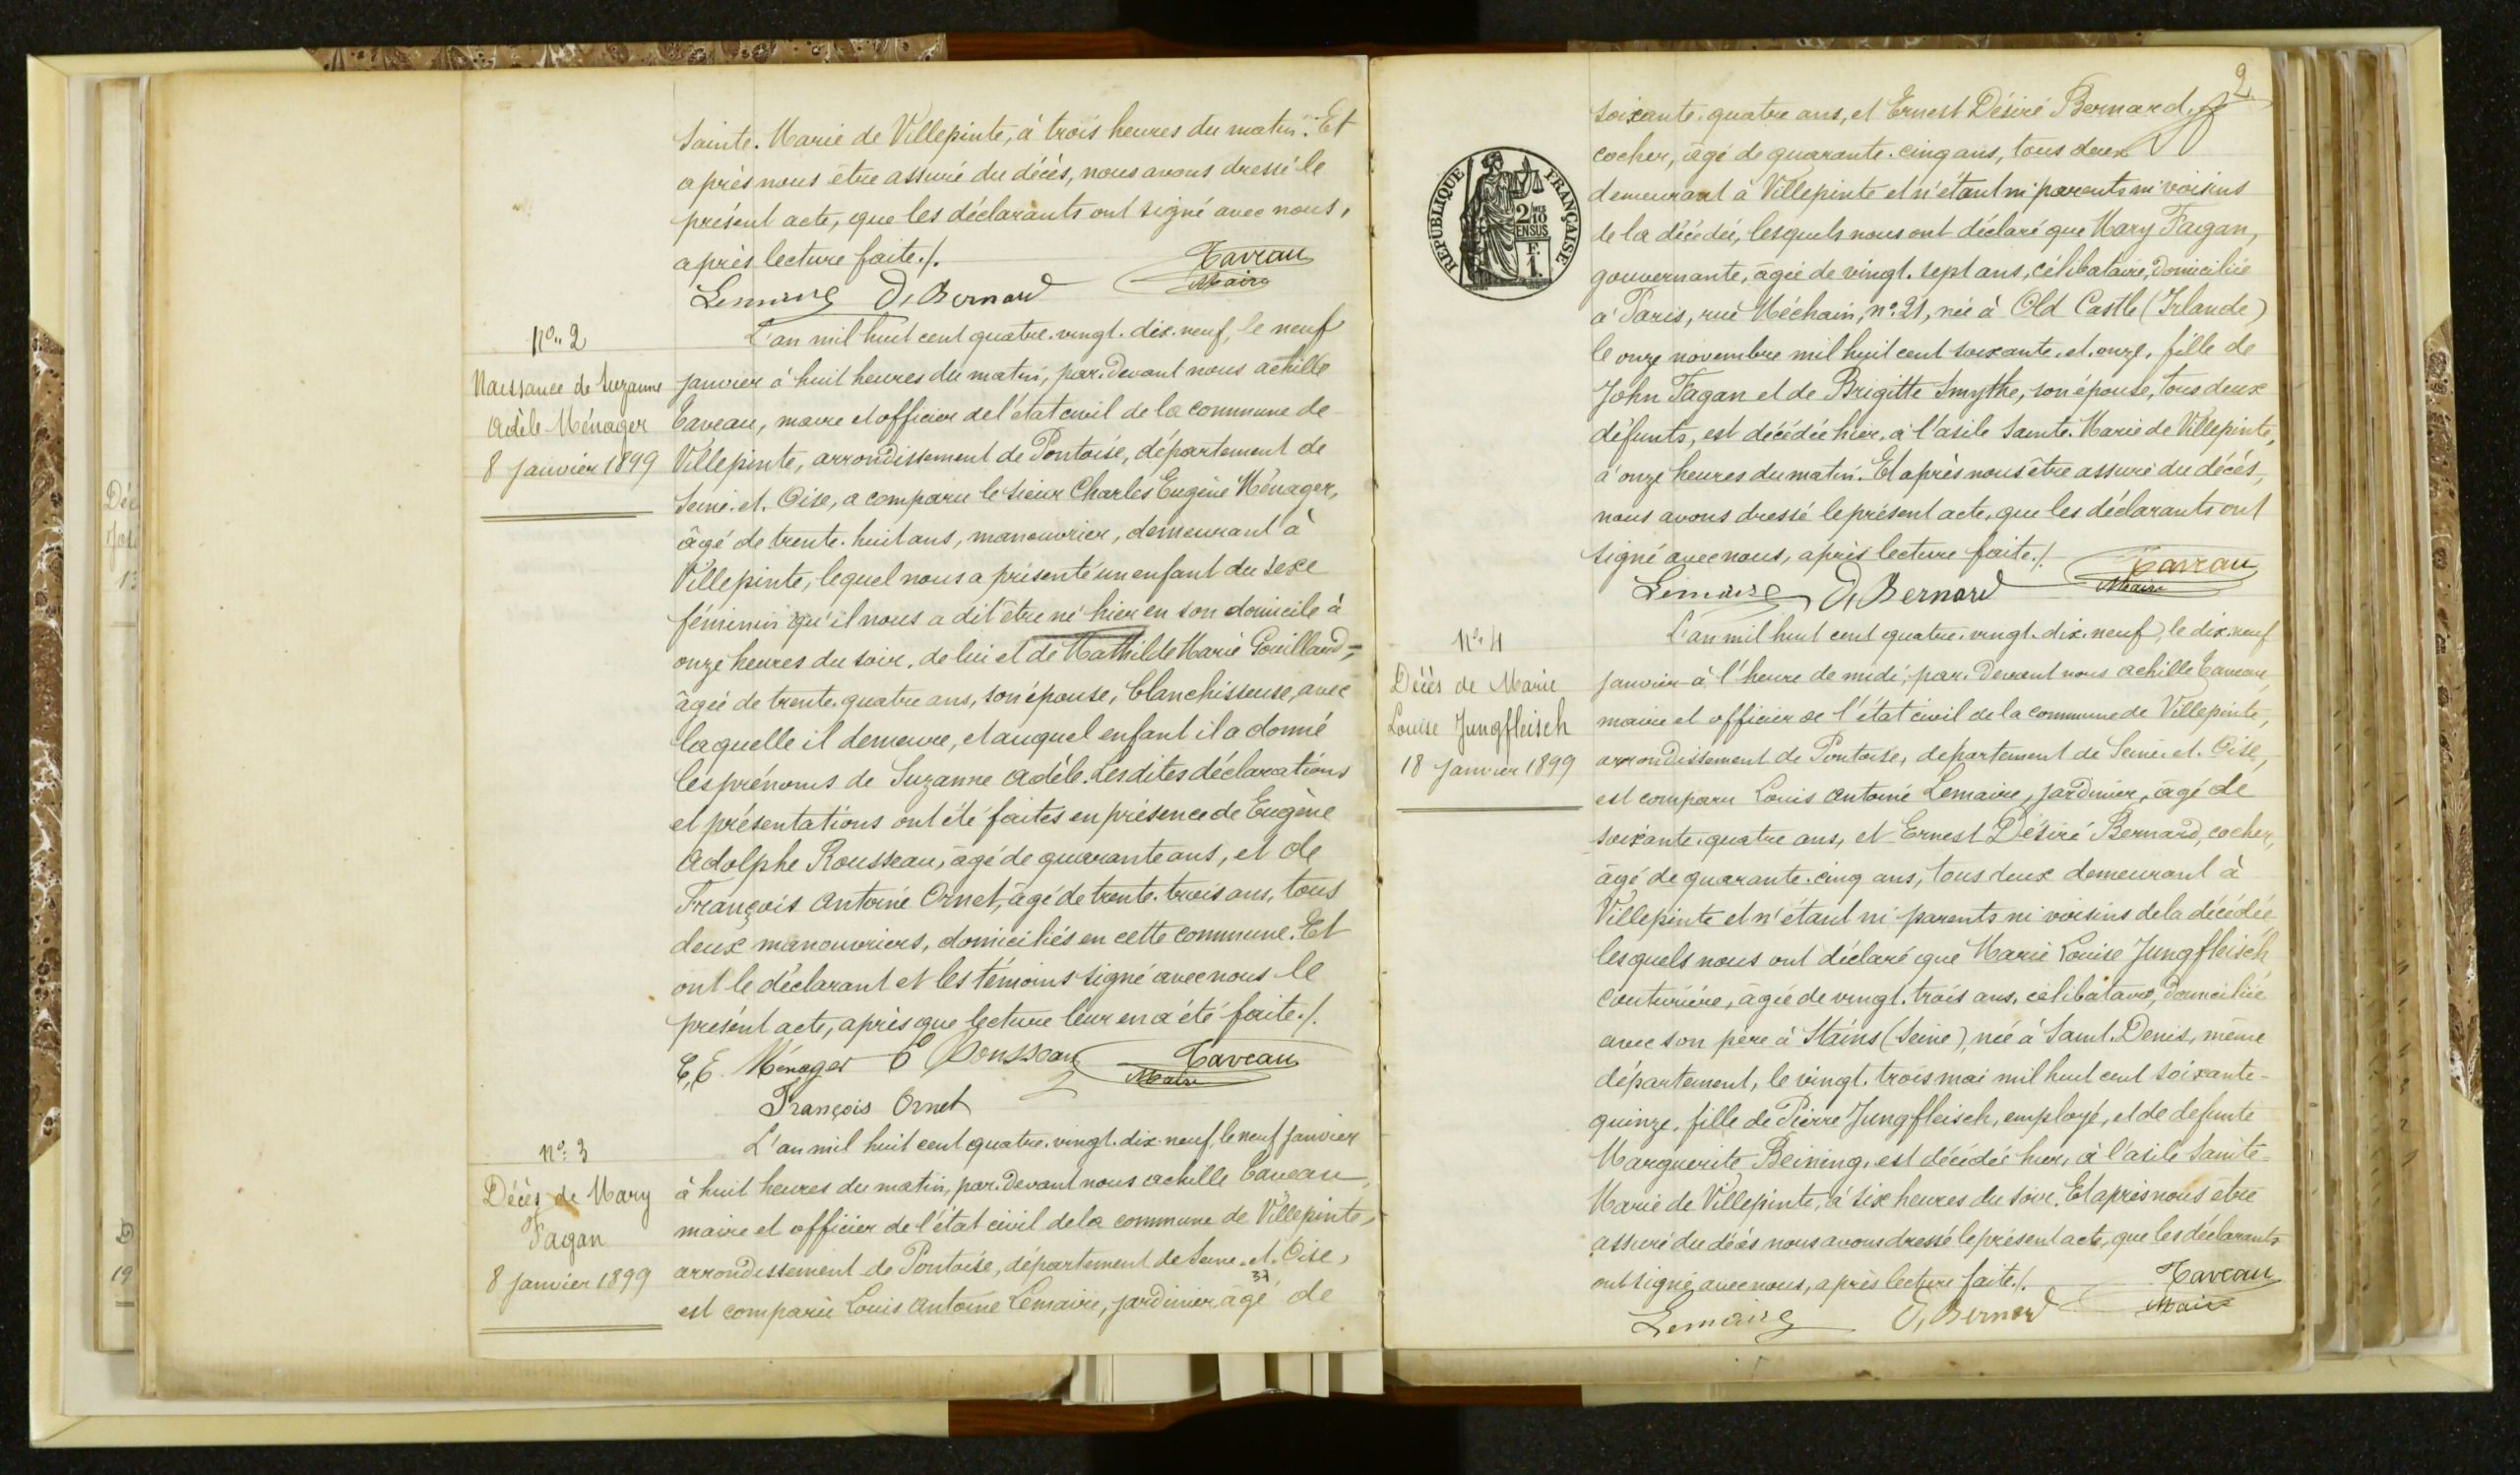 Sainte. Marie de Villepinte, à trois heures du matin. Et
après nous être assuré du décès, nous avons dressé le
présent acte, que les déclarants ont signé avec nous,
après lecture faite./.
Lemaire D. Bernard Taveau
Maire
N°. 2
Naissance de Suzanne
Adèle Ménager
8 Janvier 1899
L'an mil huit cent quatre. vingt. dix. neuf, le neuf
janvier à huit heures du matin, par. devant nous Achille
Taveau, maire et officier de l'état civil de la commune de
Villepinte, arrondissement de Pontoise, département de
Seine. et. Oise, a comparu le sieur Charles Eugène Ménager,
âgé de trente. huit ans, manouvrier, demeurant à
Villepinte, lequel nous a présenté un enfant du sexe
féminin qu'il nous a dit être né hier en son domicile à
onze heures du soir, de lui et de Mathilde Marie Gouilland,
âgée de trente. quatre ans, son épouse, blanchisseuse, avec
laquelle il demeure, et auquel enfant il a donné
les prénoms de Suzanne Adèle. Lesdites déclarations
et présentations ont été faites en présence de Eugène
Adolphe Rousseau, âgé de quarante ans, et de
François Antoine Ornet, âgé de trente. trois ans, tous
deux manouvriers, domiciliés en cette commune. Et
ont le déclarant et les témoins signé avec nous le
présent acte, après que lecture leur en a été faite./.
C, E Ménager Rousseau Taveau
Maire
François Ornet
N°. 3
Décès de Mary
Fagan
8 Janvier 1899
L'an mil huit cent quatre. vingt. dix. neuf, le neuf janvier
à huit heures du matin, par. devant nous Achille Taveau,
maire et officier de l'état civil de la commune de Villepinte,
arrondissement de Pontoise, département de Seine. et. Oise,
est comparu Louis Antoine Lemaire, jardinier âgé de
2
soixante. quatre ans, et Ernest Désiré Bernard,
cocher, âgé de quarante. cinq ans, tous deux
demeurant à Villepinte et n'étant ni parents ni voisins
de la décédée, lesquels nous ont déclaré que Mary Fagan,
gouvernante, âgée de vingt. sept ans, célibataire, domiciliée
à Paris, rue Méchain, n°. 21, née à Old Castle (Irlande)
le onze novembre mil huit cent soixante. et. onze, fille de
John Fagan et de Brigitte Smythe, son épouse, tous deux
défunts, est décédée hier, à l'asile Sainte. Marie de Villepinte,
à onze heures du matin. Et après nous être assuré du décès,
nous avons dressé le présent acte, que les déclarants ont
signé avec nous, après lecture faite./.
Lemaire D. Bernard Taveau
Maire
RÉPUBLIQUE FRANÇAISE
2/10
EN SUS
F.
1.
N°. 4
Décès de Marie
Louise Jungfleisch
18 Janvier 1899
L'an mil huit cent quatre. vingt. dix. neuf, le dix. neuf
janvier à l'heure de midi, par. devant nous Achille Taveau,
maire et officier de l'état civil de la commune de Villepinte,
arrondissement de Pontoise, département de Seine. et. Oise,
est comparu Louis Antoine Lemaire, jardinier, âgé de
soixante. quatre ans, et Ernest Désiré Bernard, cocher,
âgé de quarante. cinq ans, tous deux demeurant à
Villepinte et n'étant ni parents ni voisins de la décédée
lesquels nous ont déclaré que Marie Louise Jungfleisch
couturière, âgée de vingt. trois ans, célibataire, domiciliée
avec son père à Stains (Seine), née à Saint. Denis, même
département, le vingt. trois mai mil huit cent soixante-
quinze, fille de Pierre Jungfleisch, employé, et de défunte
Marguerite Beining, est décédée hier, à l'asile Sainte-
Marie de Villepinte, à six heures du soir. Et après nous être
assuré du décès nous avons dressé le présent acte, que les déclarants
ont signé avec nous, après lecture faite./.
Lemaire D. Bernard Taveau
Maire